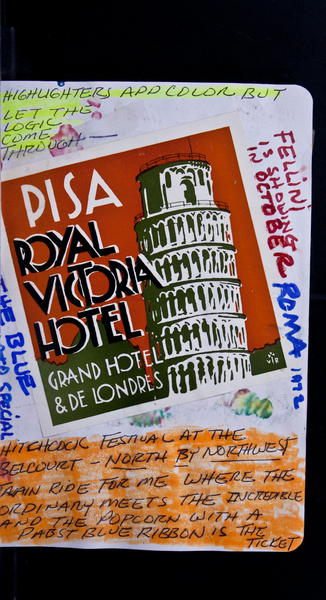 HIGHLIGHTERS ADD COLOR BUT
LET THE
LOGIC
COME
THROUGH —
FELLINI
IS SHOWING
IN OCTOBER
ROMA 1972
PISA
ROYAL
VICTORIA
HOTEL
GRAND HOTEL
& DE LONDRES
THE BLUE
SPECIAL
HITCHCOCK FESTIVAL AT THE
BELCOURT - NORTH BY NORTHWEST
TRAIN RIDE FOR ME WHERE THE
ORDINARY MEETS THE INCREDIBLE
AND THE POPCORN WITH A
PABST BLUE RIBBON IS THE
TICKET